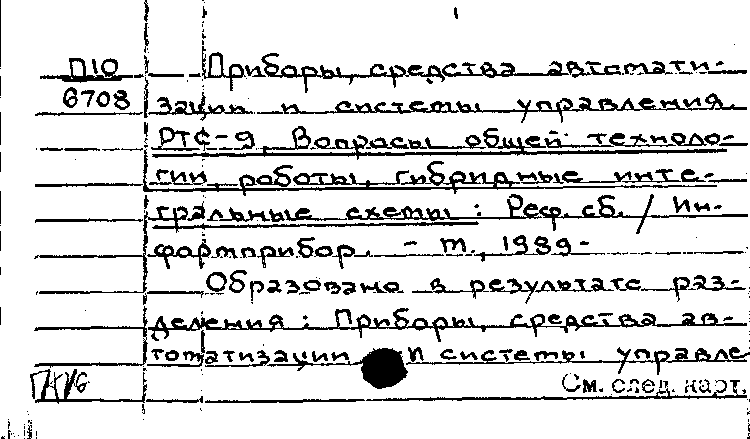 П10 Приборы, средства автомати-
6708 зации и системы управления.
РТС-9, Вопросы общей техноло-
гии, роботы, гибридные инте-
гральные схемы : Реф. сб. / Ин-
формприбор. - М., 1989-
Образовано в результате раз-
деления : Приборы, средства ав-
томатизации и системы управле
См. след. карт.